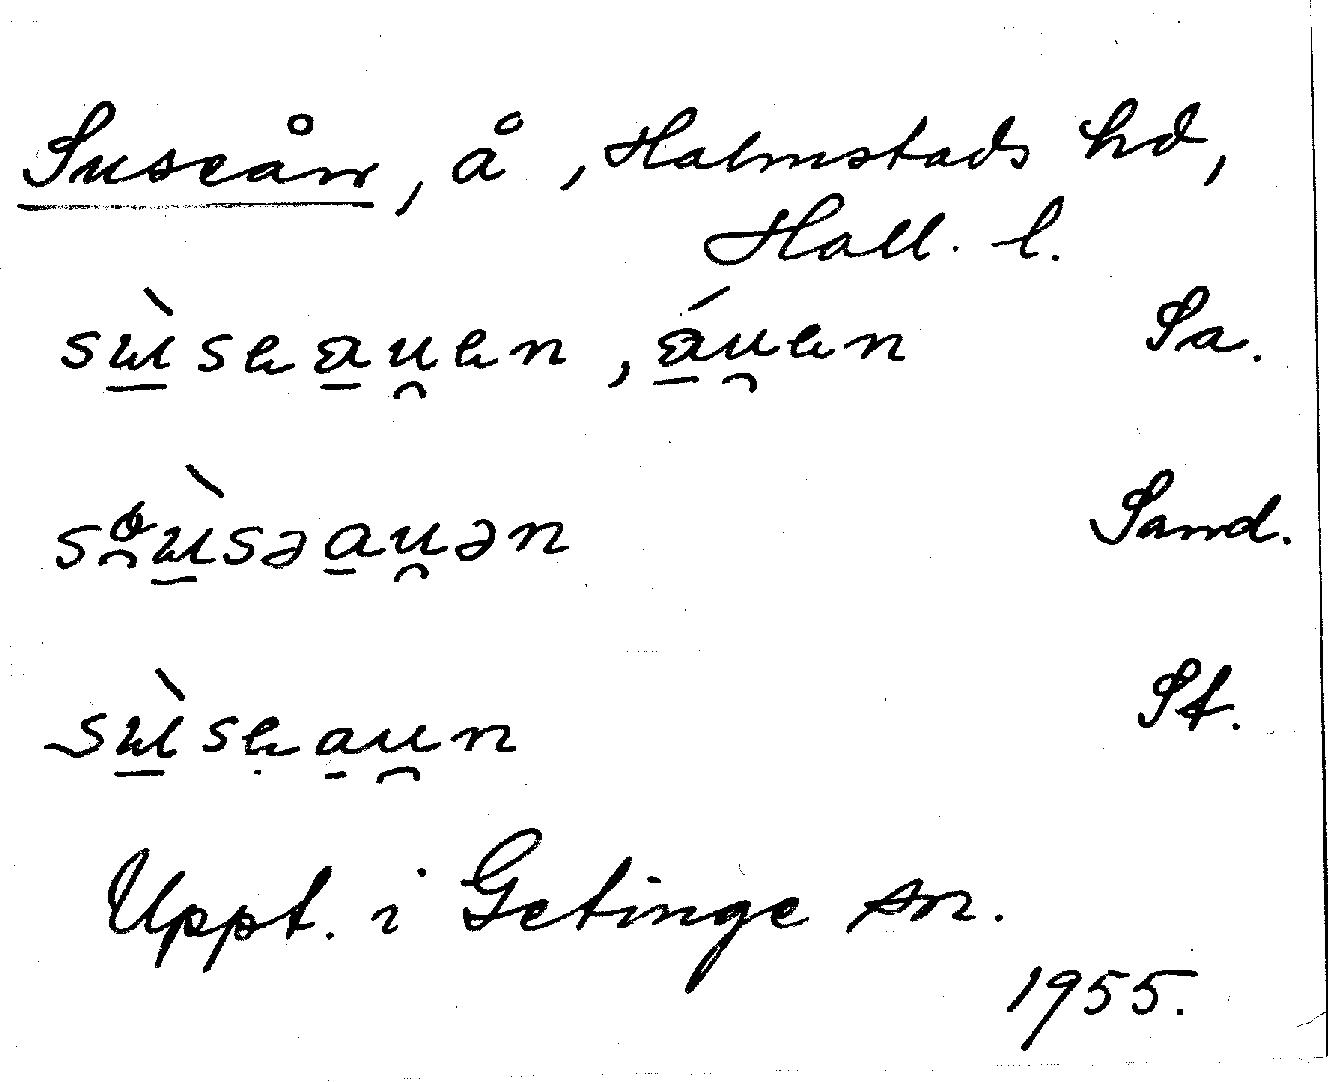 Suseån, å, Halmstads hd,
Hall. l.
sɯ̱̀sea̱u̯en, á̱u̯en Sa.
sɵ̯ɯ̱̀səa̱u̯ən Sand.
sɯ̱̀sẹa̱u̯n St.
Uppt. i Getinge sn.
1955.